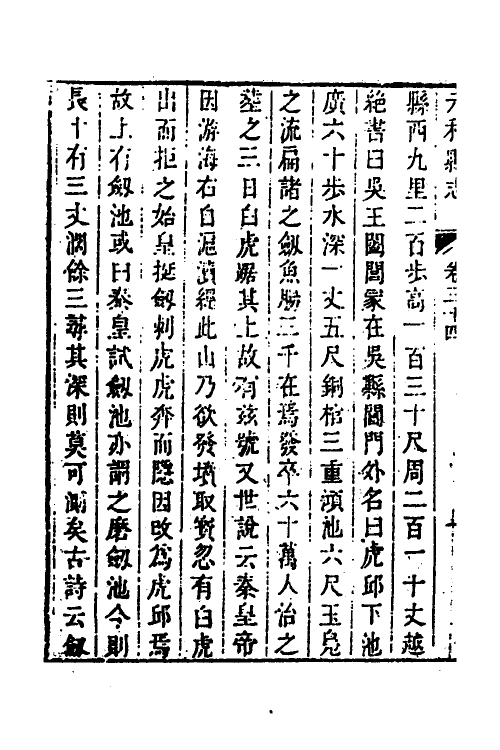 元和縣志 卷三十四
縣西九里二百步高一百三十尺周二百一十丈越
絶書曰吳王闔閭冢在吳縣閶門外名曰虎邱下池
廣六十步水深一丈五尺銅棺三重澒池六尺玉鳧
之流扁諸之劍魚腸三千在焉發卒六十萬人治之
塟之三日白虎踞其上故有兹號又世說云秦皇帝
因游海右自滬瀆經此山乃欲發墳取寳忽有白虎
出而拒之始皇挺劍刺虎虎奔而隱因改爲虎邱焉
故上有劍池或曰秦皇試劍池亦謂之磨劍池今則
長十有三丈濶餘三尋其深則莫可測矣古詩云劍